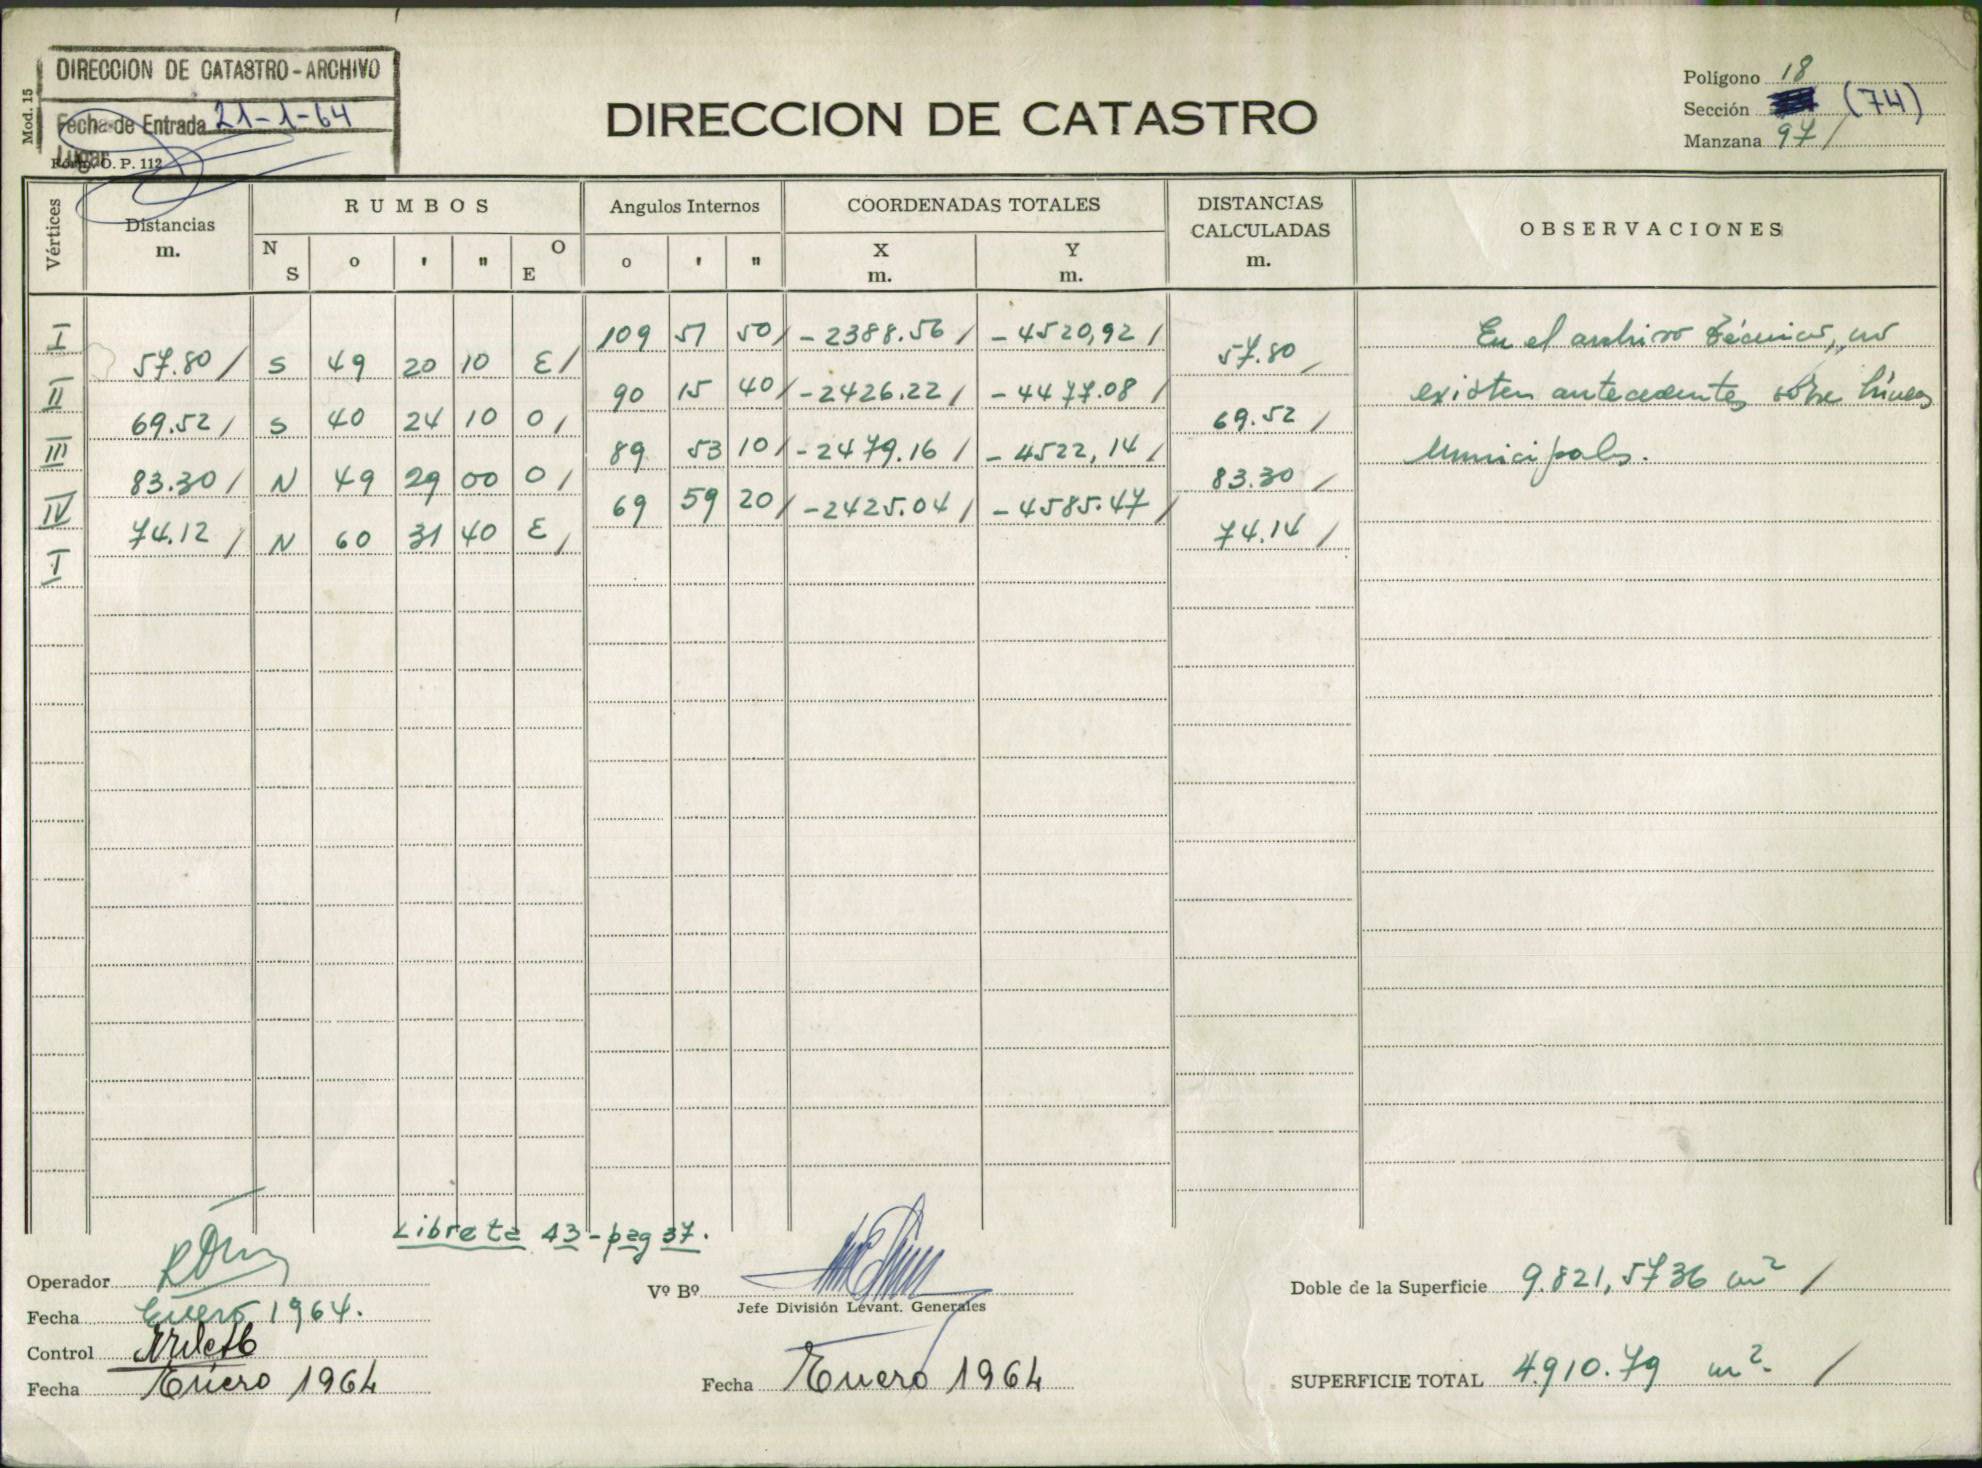 DIRECCION DE CATASTRO-ARCHIVO
Fecha de Entrada 21-1-64
Lugar
Mod. 15
O. P. 112
DIRECCION DE CATASTRO
Polígono 18
Sección (74)
Manzana 97/
Vértices
Distancias
m.
RUMBOS
N S ° ' " O E
Angulos Internos
° ' "
COORDENADAS TOTALES
X
m.
Y
m.
DISTANCIAS
CALCULADAS
m.
OBSERVACIONES
I 109 51 50/ -2388.56/ -4520,92/
57.80/ S 49 20 10 E/ 57.80/
II 90 15 40/ -2426.22/ -4477.08/
69.52/ S 40 24 10 O/ 69.52/
III 89 53 10/ -2479.16/ -4522,14/
83.30/ N 49 29 00 O/ 83.30/
IV 69 59 20/ -2425.04/ -4585.47/
74.12/ N 60 31 40 E/ 74.14/
I
En el archivo técnico, no
existen antecedentes sobre líneas
Municipales.
Libreta 43-pag 37.
Operador
Fecha Enero 1964.
Control
Fecha Enero 1964
Vº Bº
Jefe División Levant. Generales
Fecha Enero 1964
Doble de la Superficie 9.821,5736 m2 /
SUPERFICIE TOTAL 4.910.79 m2. /